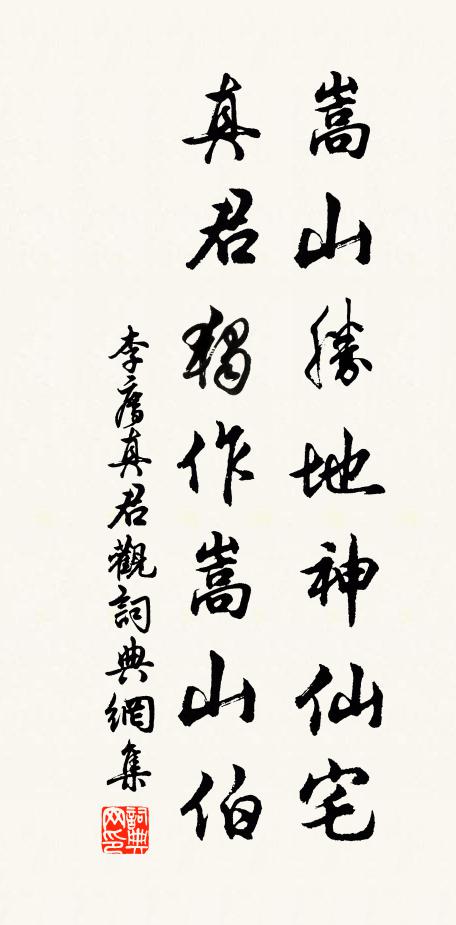 嵩山勝地神仙宅
真君獨作嵩山伯
李廌真君觀詞典網集
詞典
网印